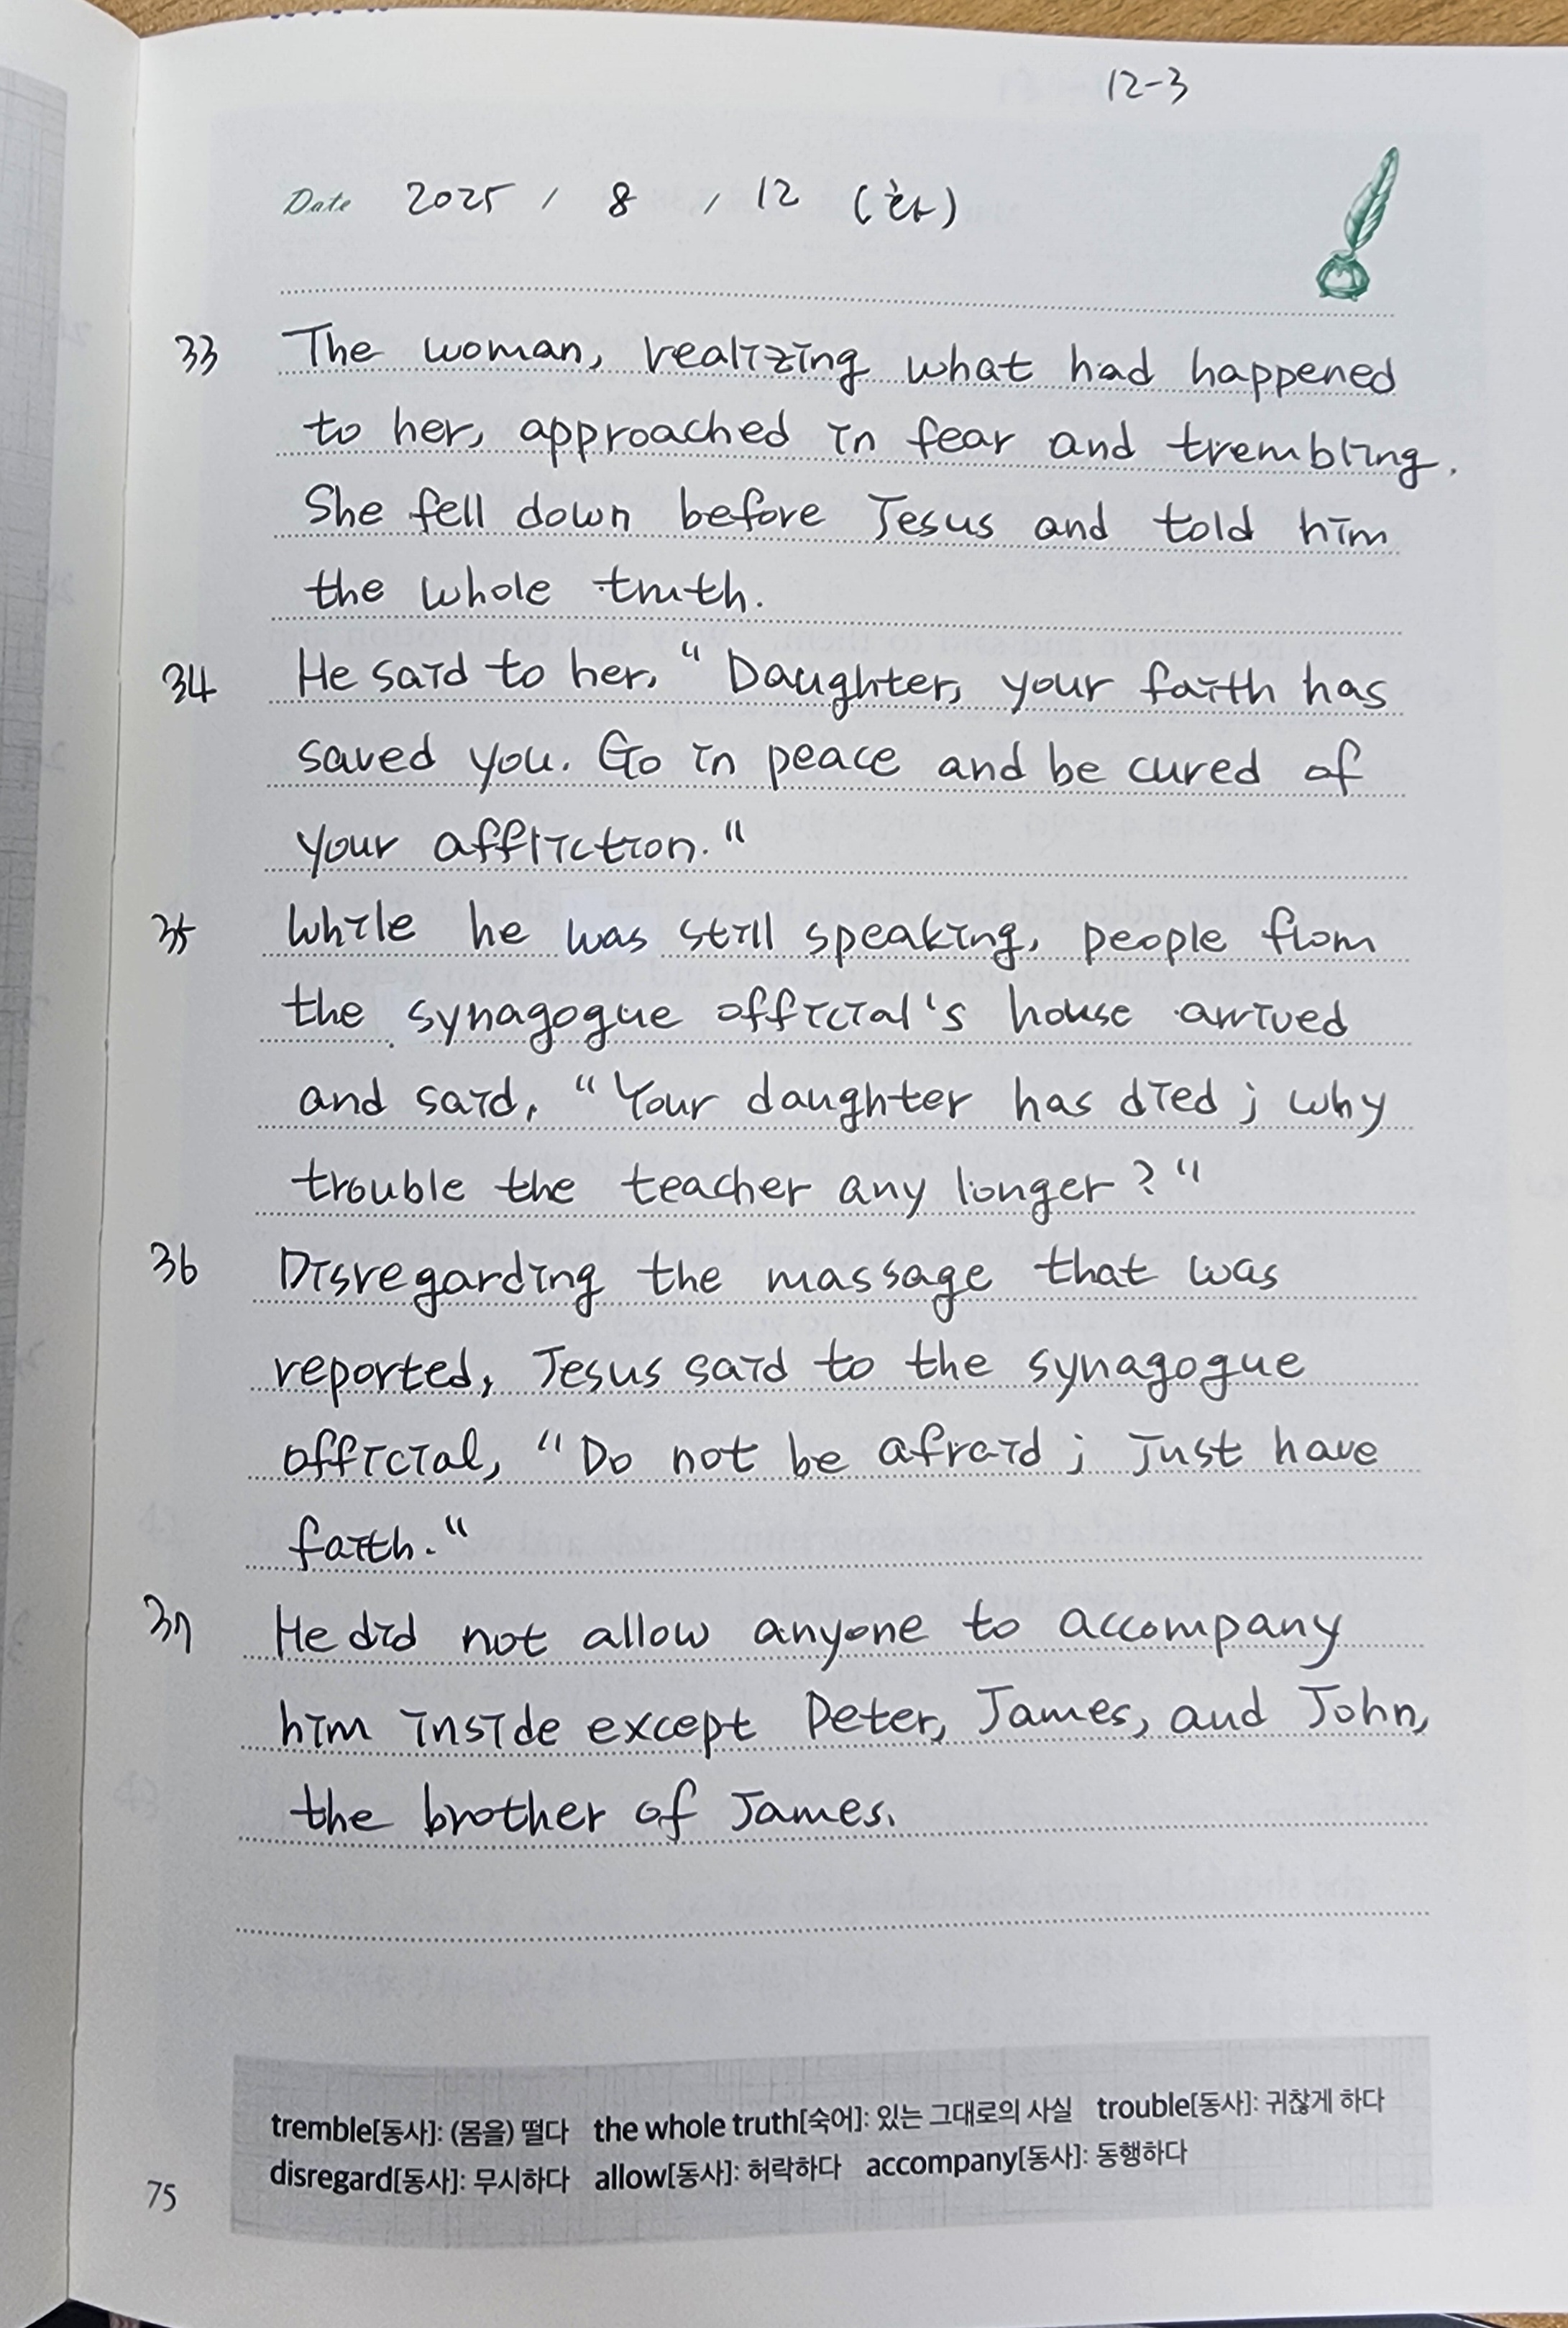 12-3
Date 2025 / 8 / 12 (화)
33 The woman, realizing what had happened
to her, approached in fear and trembling.
She fell down before Jesus and told him
the whole truth.
34 He said to her, "Daughter, your faith has
saved you. Go in peace and be cured of
your affliction."
35 While he was still speaking, people from
the synagogue official's house arrived
and said, "Your daughter has died; why
trouble the teacher any longer?"
36 Disregarding the massage that was
reported, Jesus said to the synagogue
official, "Do not be afraid; just have
faith."
37 He did not allow anyone to accompany
him inside except Peter, James, and John,
the brother of James.
tremble[동사]: (몸을) 떨다 the whole truth[숙어]: 있는 그대로의 사실 trouble[동사]: 귀찮게 하다
disregard[동사]: 무시하다 allow[동사]: 허락하다 accompany[동사]: 동행하다
75